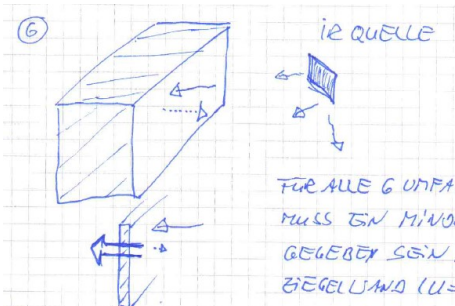 6
IR QUELLE
FÜR ALLE 6 UMFA
MUSS EIN MIND
GEGEBEN SEIN
ZIEGELWAND (U=